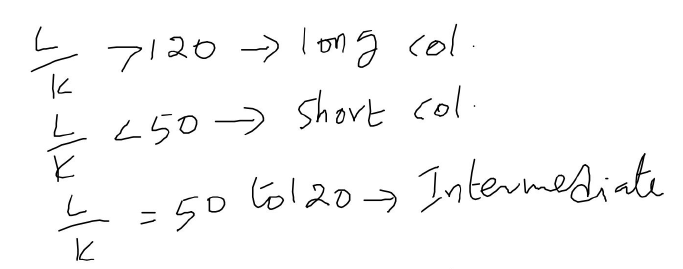 L/K >120 → long col.
L/K <50 → short col.
L/K = 50 to 120 → Intermediate